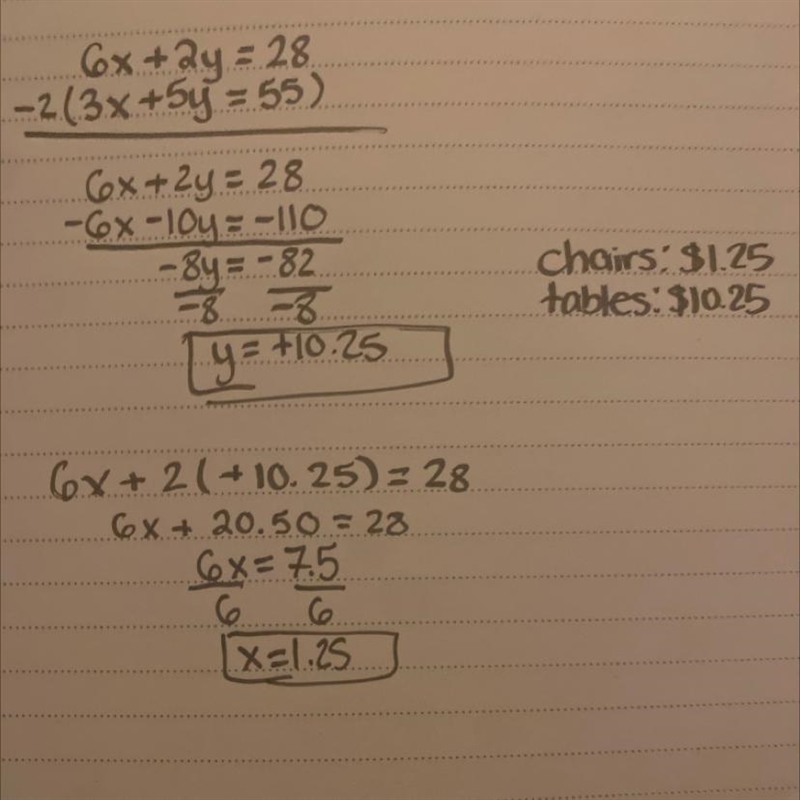 6x+2y=28
-2(3x+5y=55)
6x+2y=28
-6x-10y=-110
-8y=-82
-8 -8
y=+10.25
chairs: $1.25
tables: $10.25
6x+2(+10.25)=28
6x+20.50=28
6x=7.5
6 6
x=1.25